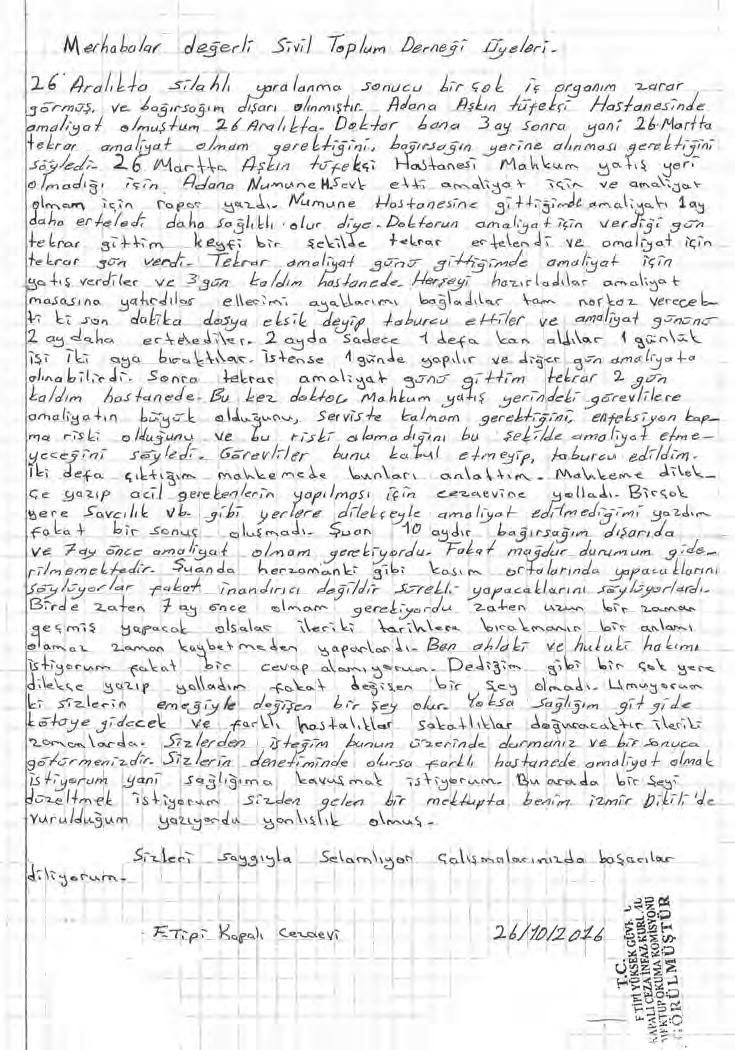 Merhabalar değerli Sivil Toplum Derneği Üyeleri.
26 Aralıkta silahlı yaralanma sonucu bir çok iç organım zarar
görmüş, ve bağırsağım dışarı alınmıştır. Adana Aşkın tüfekçi Hastanesinde
amaliyat olmuştum 26 Aralıkta. Doktor bana 3 ay sonra yani 26 Martta
tekrar amaliyat olmam gerektiğini, bağırsağın yerine alınması gerektiğini
söyledi. 26 Martta Aşkın tüfekçi Hastanesi Mahkum yatış yeri
olmadığı için Adana Numune H.Sevk etti amaliyat için ve amaliyat
olmam için rapor yazdı. Numune Hastanesine gittiğimde amaliyatı 1 ay
daha erteledi daha sağlıklı olur diye. Doktorun amaliyat için verdiği gün
tekrar gittim keyfi bir şekilde tekrar ertelendi ve amaliyat için
tekrar gün verdi. Tekrar amaliyat günü gittiğimde amaliyat için
yatış verdiler ve 3 gün kaldım hastanede. Herşeyi hazırladılar amaliyat
masasına yatırdılar ellerimi ayaklarımı bağladılar tam narkoz verecek-
ti ki son dakika dosya eksik deyip taburcu ettiler ve amaliyat gününü
2 ay daha ertelediler. 2 ayda sadece 1 defa kan aldılar 1 günlük
işi iki aya bıraktılar. İstense 1 günde yapılır ve diğer gün amaliyata
alınabilirdi. Sonra tekrar amaliyat günü gittim tekrar 2 gün
kaldım hastanede. Bu kez doktor Mahkum yatış yerindeki görevlilere
amaliyatın büyük olduğunu, Serviste kalmam gerektiğini, enfeksiyon kap-
ma riski olduğunu ve bu riski alamadığını bu şekilde amaliyat etme-
yeceğini söyledi. Görevliler bunu kabul etmeyip, taburcu edildim.
İki defa çıktığım mahkemede bunları anlattım. Mahkeme dilek-
çe yazıp acil gerekenlerin yapılması için cezaevine yolladı. Birçok
yere Savcılık vb. gibi yerlere dilekçeyle amaliyat edilmediğimi yazdım
fakat bir sonuç oluşmadı. Şuan 10 aydır bağırsağım dışarıda
ve 7 ay önce amaliyat olmam gerekiyordu. Fakat mağdur durumum gide-
rilmemektedir. Şuanda herzamanki gibi kasım ortalarında yapacaklarını
söylüyorlar fakat inandırıcı değildir sürekli yapacaklarını söylüyorlardı.
Birde zaten 7 ay önce olmam gerekiyordu zaten uzun bir zaman
geçmiş yapacak olsalar ileriki tarihlere bırakmanın bir anlamı
olamaz zaman kaybetmeden yaparlardı. Ben ahlaki ve hukuki hakımı
istiyorum fakat bir cevap alamıyorum. Dediğim gibi bir çok yere
dilekçe yazıp yolladım fakat değişen bir şey olmadı. Umuyorum
ki sizlerin emeğiyle değişen bir şey olur. Yoksa sağlığım git gide
kötüye gidecek ve farklı hastalıklar sakatlıklar doğuracaktır ileriki
zamanlarda. Sizlerden isteğim bunun üzerinde durmanız ve bir sonuca
götürmenizdir. Sizlerin denetiminde olursa farklı hastanede amaliyat olmak
istiyorum yani sağlığıma kavuşmak istiyorum. Bu arada bir şeyi
düzeltmek istiyorum sizden gelen bir mektupta benim izmir Dikili'de
vurulduğum yazıyordu yanlışlık olmuş.
Sizleri saygıyla Selamlıyor çalışmalarınızda başarılar
diliyorum.
F.Tipi Kapalı cezaevi 26/10/2016
T.C.
F TİPİ YÜKSEK GÜV
KAPALI CEZA İNFAZ KURU
MEKTUP OKUMA KOMİSYONU
GÖRÜLMÜŞTÜR